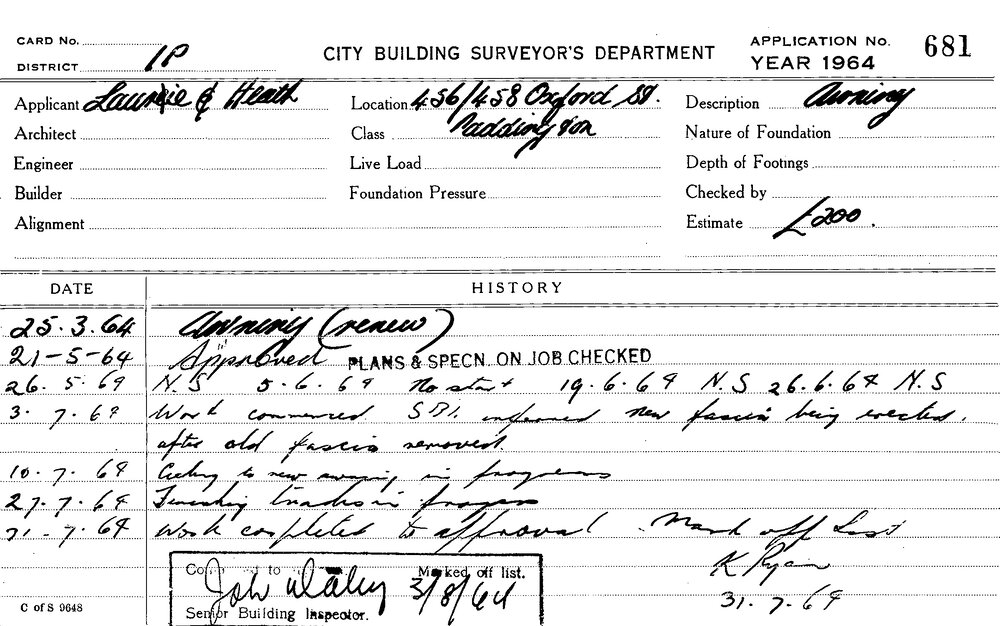 CARD No.
DISTRICT 1P
CITY BUILDING SURVEYOR'S DEPARTMENT
APPLICATION No. 681
YEAR 1964
Applicant Laurie & Heath
Location 456/458 Oxford St.
Description Awning
Architect
Class Paddington
Nature of Foundation
Engineer
Live Load
Depth of Footings
Builder
Foundation Pressure
Checked by
Alignment
Estimate £200.
DATE HISTORY
25.3.64 Awning (renew)
21-5-64 Approved PLANS & SPECN. ON JOB CHECKED
26.5.64 N.S 5.6.64 No start 19.6.64 N.S 26.6.64 N.S
3.7.64 Work commenced informed new fascia being erected.
after old fascia removed.
10.7.64 Ceiling to new awning in progress
27.7.64 Finishing trades in progress
31.7.64 Work completed to approval. Mark off List
K Ryan
31.7.64
to Marked off list.
3/8/64
Senior Building Inspector.
C of S 9648